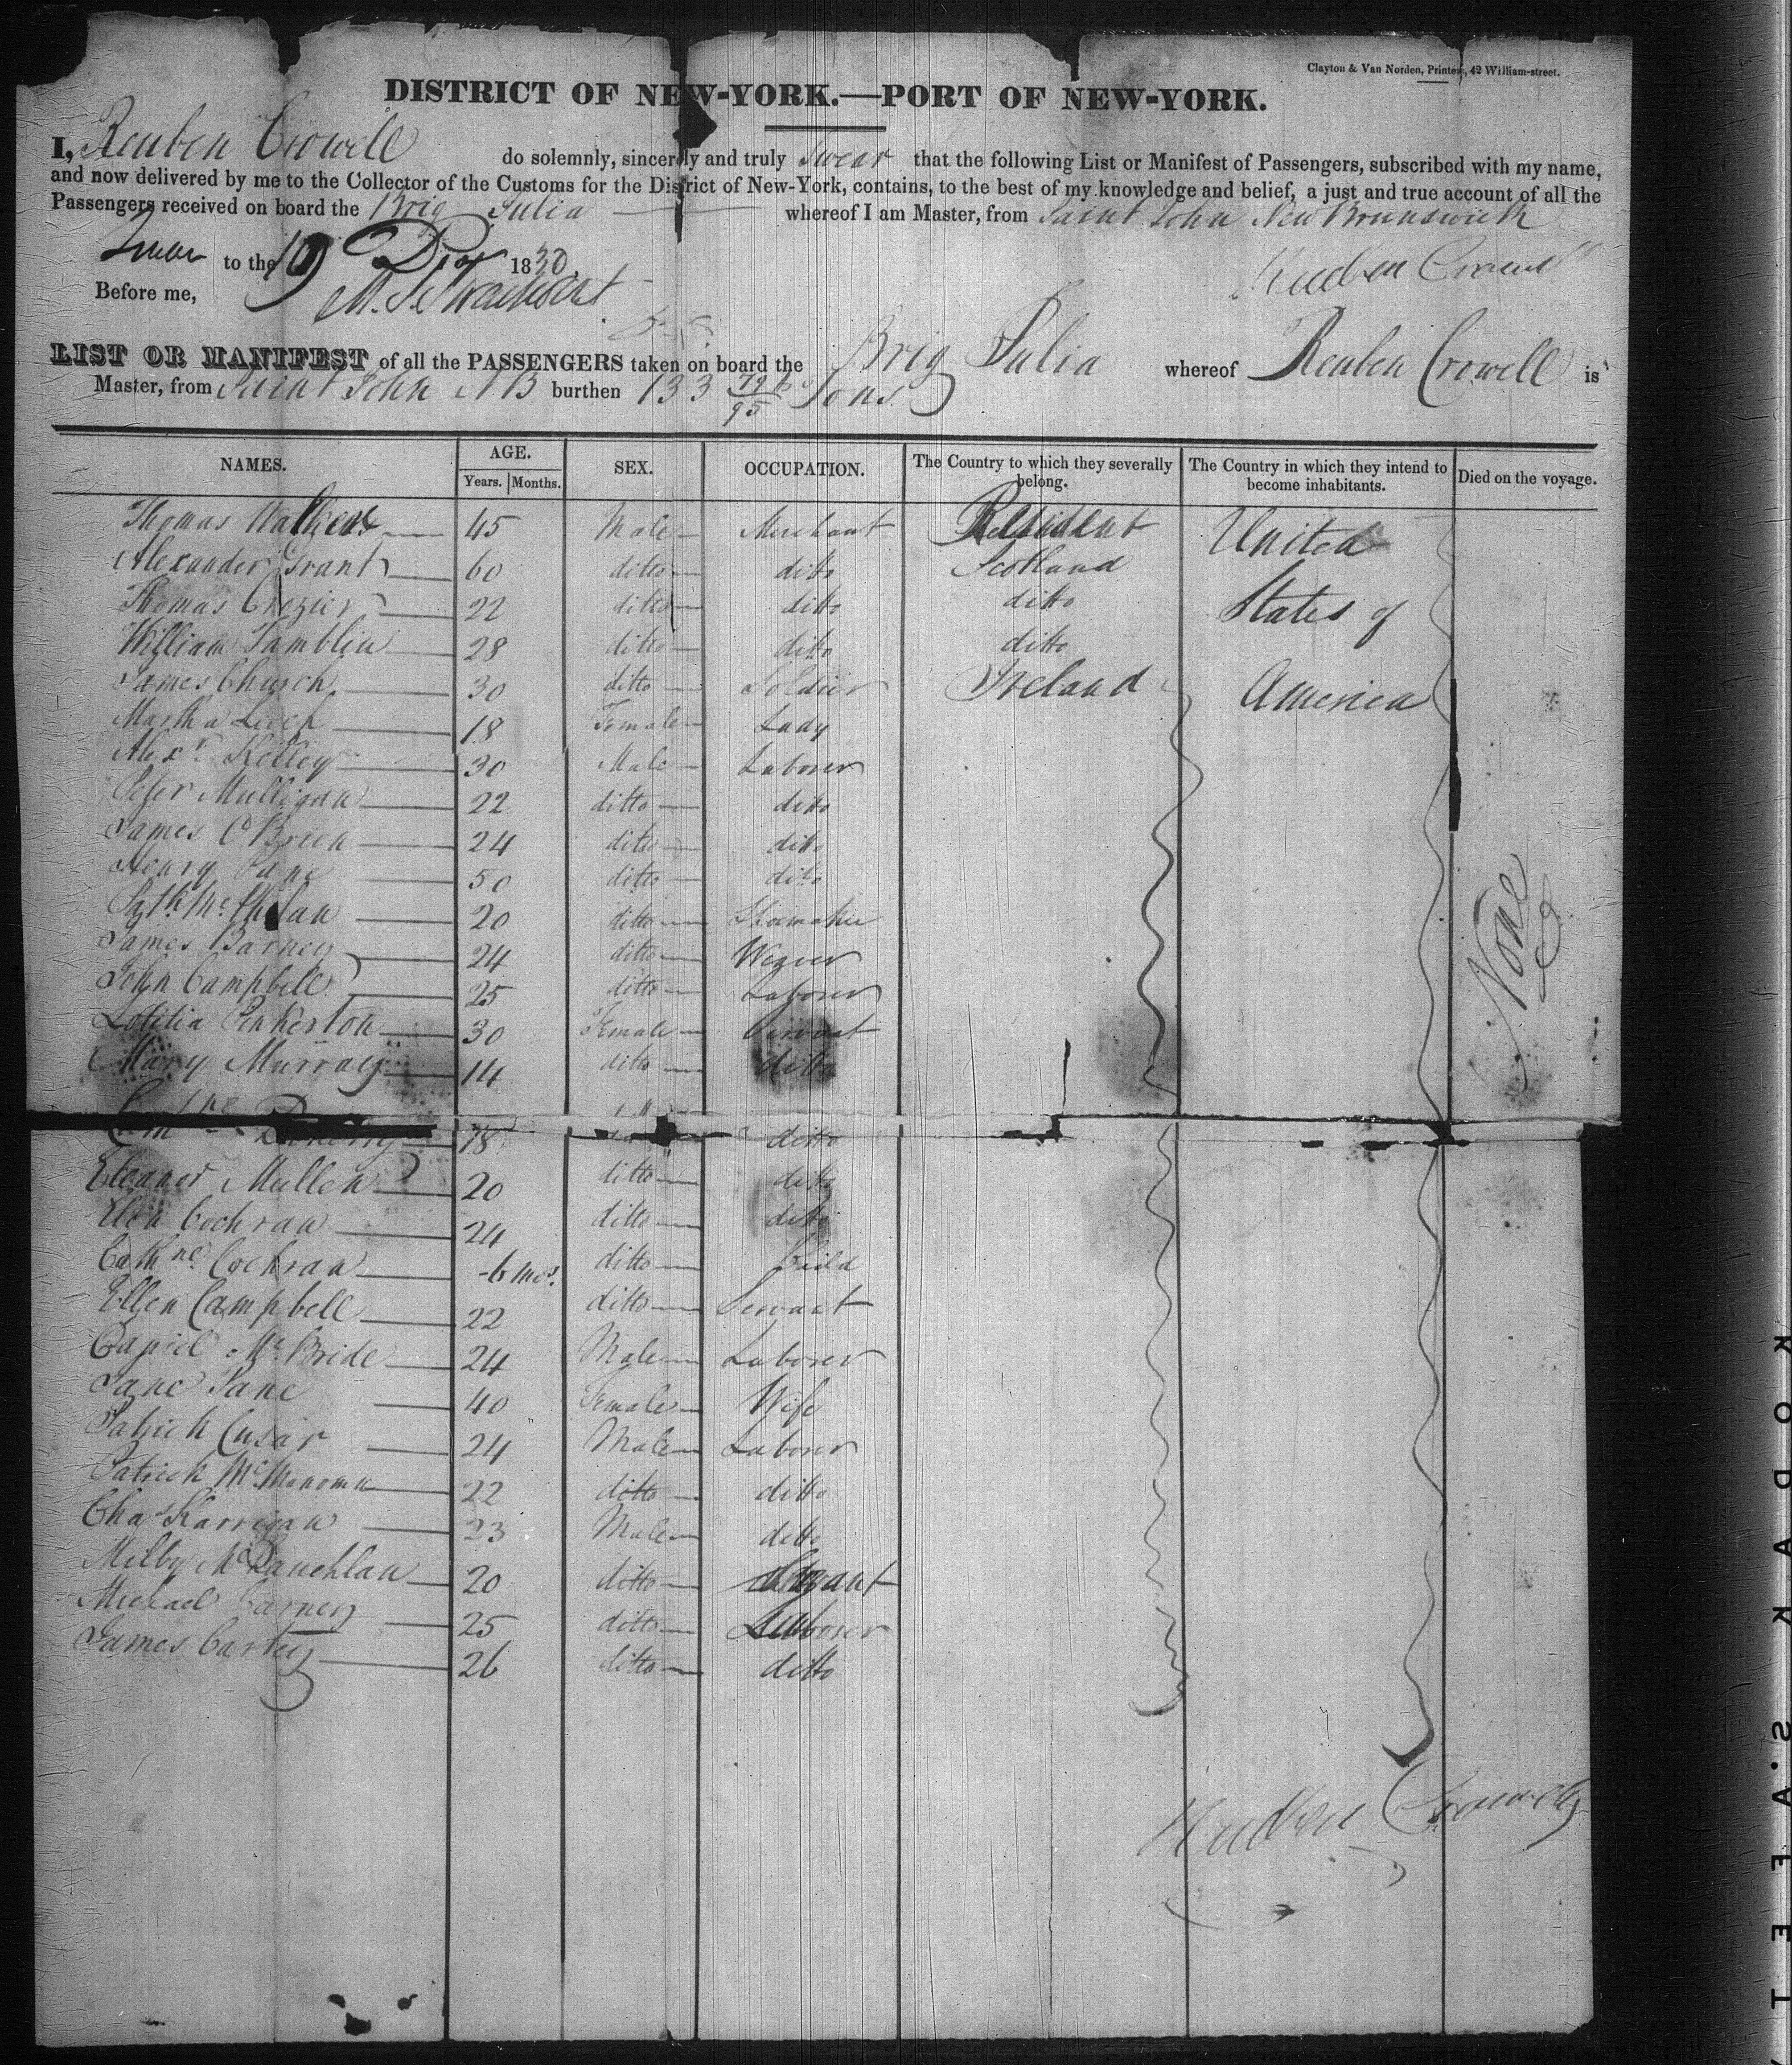 Clayton & Van Norden, Printers, 42 William-street.
DISTRICT OF NEW-YORK.—PORT OF NEW-YORK.
I, Reuben Crowell do solemnly, sincerely and truly Swear that the following List or Manifest of Passengers, subscribed with my name,
and now delivered by me to the Collector of the Customs for the District of New-York, contains, to the best of my knowledge and belief, a just and true account of all the
Passengers received on board the Brig Julia whereof I am Master, from Saint John New Brunswick
to the 1830
Reuben Crowell
Before me,
LIST OR MANIFEST of all the PASSENGERS taken on board the Brig Julia whereof Reuben Crowell is
Master, from Saint John N.B burthen 133 72/95 Tons.
NAMES. AGE. SEX. OCCUPATION. The Country to which they severally belong. The Country in which they intend to become inhabitants. Died on the voyage.
Years. Months.
Thomas 45 Male Merchant United
Alexander Grant 60 ditto ditto Scotland
Thomas Crozier 22 ditto ditto ditto States of
William Tamblin 28 ditto ditto ditto
James Church 30 ditto Soldier Ireland America
Martha Leech 18 Female Lady
Alexr. Kelley 30 Male Laborer
Peter Mulligan 22 ditto ditto
James O'Brien 24 ditto ditto
Henry 50 ditto ditto
20 ditto Shoemaker
James Barney 24 ditto Weaver
John Campbell 25 ditto Laborer
Letitia Pinkerton 30 Female Servant
Mary Murray 14 ditto ditto
18 ditto
Eleanor Mullen 20 ditto ditto
Cochran 24 ditto ditto
Cathne. Cochran 6 mos. ditto Child
Ellen Campbell 22 ditto Servant
McBride 24 Male Laborer
Jane 40 Female Wife
Patrick Cusar 24 Male Laborer
Patrick 22 ditto ditto
Chas Karrigan 23 Male ditto
McLauchlan 20 ditto
Michael Carney 25 ditto Laborer
James 26 ditto ditto
None
Reuben Crowell
KODAK SAFETY